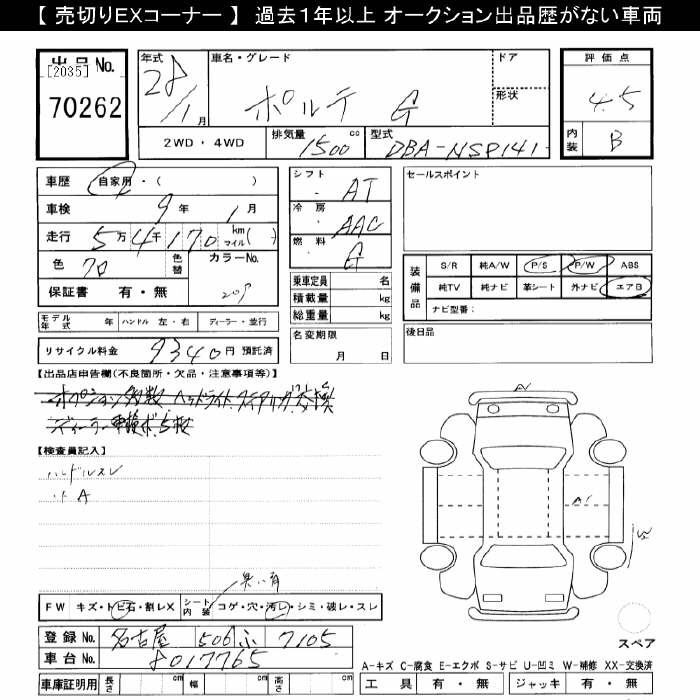 【 売切りEXコーナー 】 過去1年以上 オークション出品歴がない車両
出品 No.
[2035]
70262
年式
28/1月
車名・グレード
ポルテ G
ドア
形状
2WD ・ 4WD
排気量
1500 cc
型式
DBA-NSP141-
評価点
4.5
内装
B
車歴 自家用・( )
車検 9年 1月
走行 5万4千170 km マイル( )
色 70 色替 カラーNo. 209
保証書 有・無
シフト AT
冷房 AAC
燃料 G
乗車定員 名
積載量 kg
総重量 kg
セールスポイント
装備品
S/R 純A/W P/S P/W ABS
純TV 純ナビ 革シート 外ナビ エアB
ナビ型番:
モデル年式 年 ハンドル 左・右 ディーラー・並行
名変期限
月 日
後日品
リサイクル料金 9340円 預託済
【出品店申告欄(不良箇所・欠品・注意事項等)】
【検査員記入】
ハンドルスレ
A
A1
FW キズ・トビ石・割レX シート内装 コゲ・穴・汚レ・シミ・破レ・スレ
登録 No. 名古屋 506 ふ 7105
車台 No. 8017765
スペア
A-キズ C-腐食 E-エクボ S-サビ U-凹ミ W-補修 XX-交換済
車庫証明用 長さ cm 幅 cm 高さ cm
工具 有・無 ジャッキ 有・無